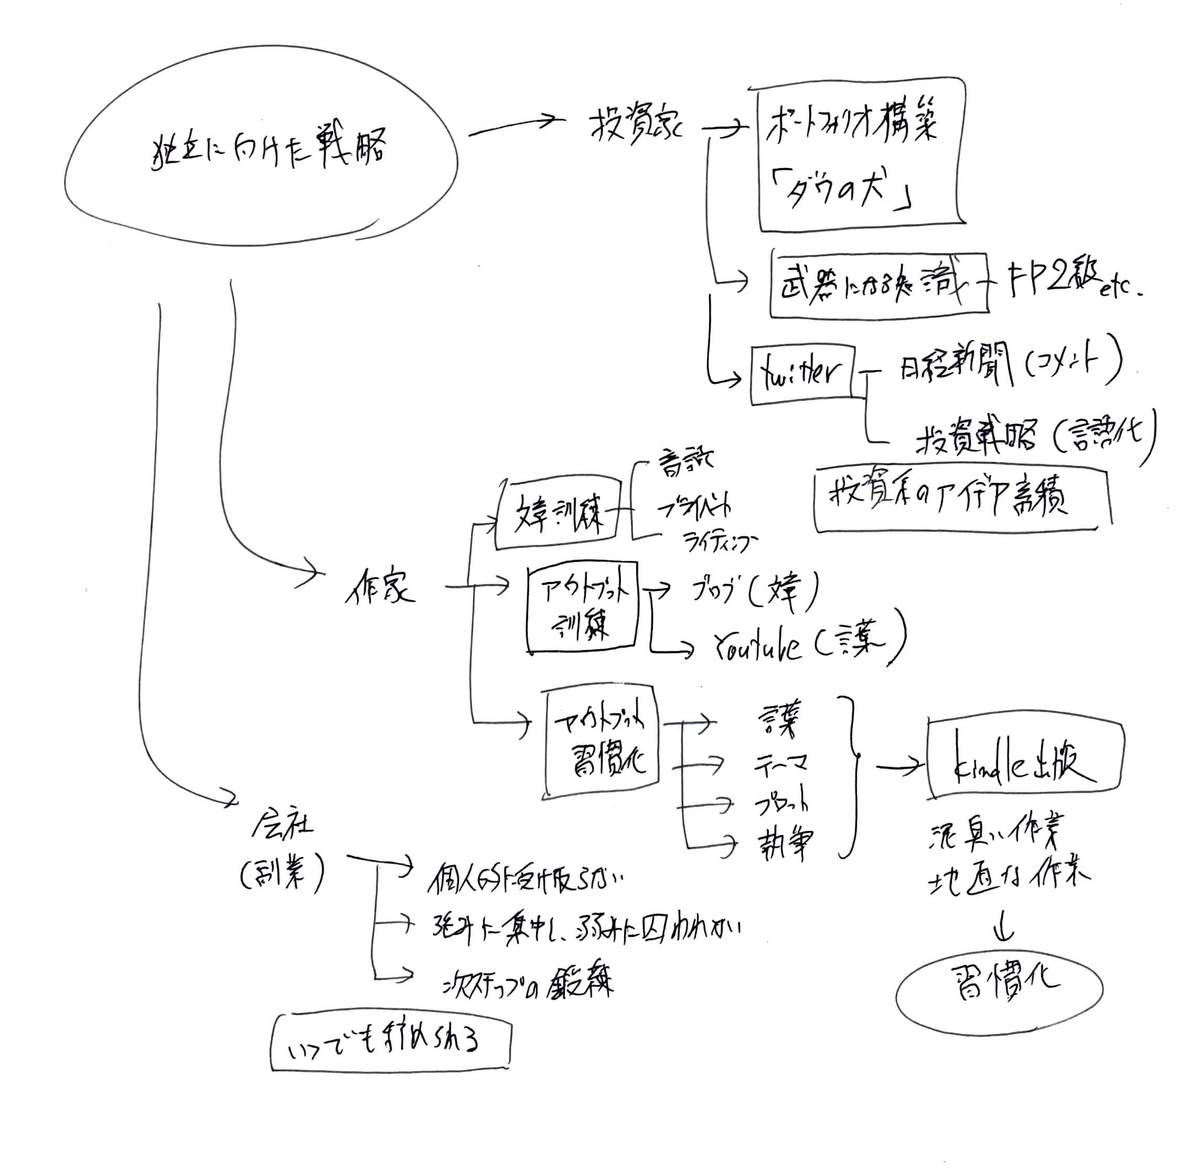 独立に向けた戦略
投資家
ポートフォリオ構築
「ダウの犬」
武器になる知識
FP2級etc.
twitter
日経新聞(コメント)
投資戦略(言語化)
投資系のアイデア蓄積
作家
文章訓練
音読
プライベート
ライティング
アウトプット
訓練
ブログ(文章)
Youtube(言葉)
アウトプット
習慣化
言葉
テーマ
プロット
執筆
kindle出版
泥臭い作業
地道な作業
習慣化
会社
(副業)
個人的に受け取らない
強みに集中し、弱みに囚われない
次ステップの鍛練
いつでも辞められる